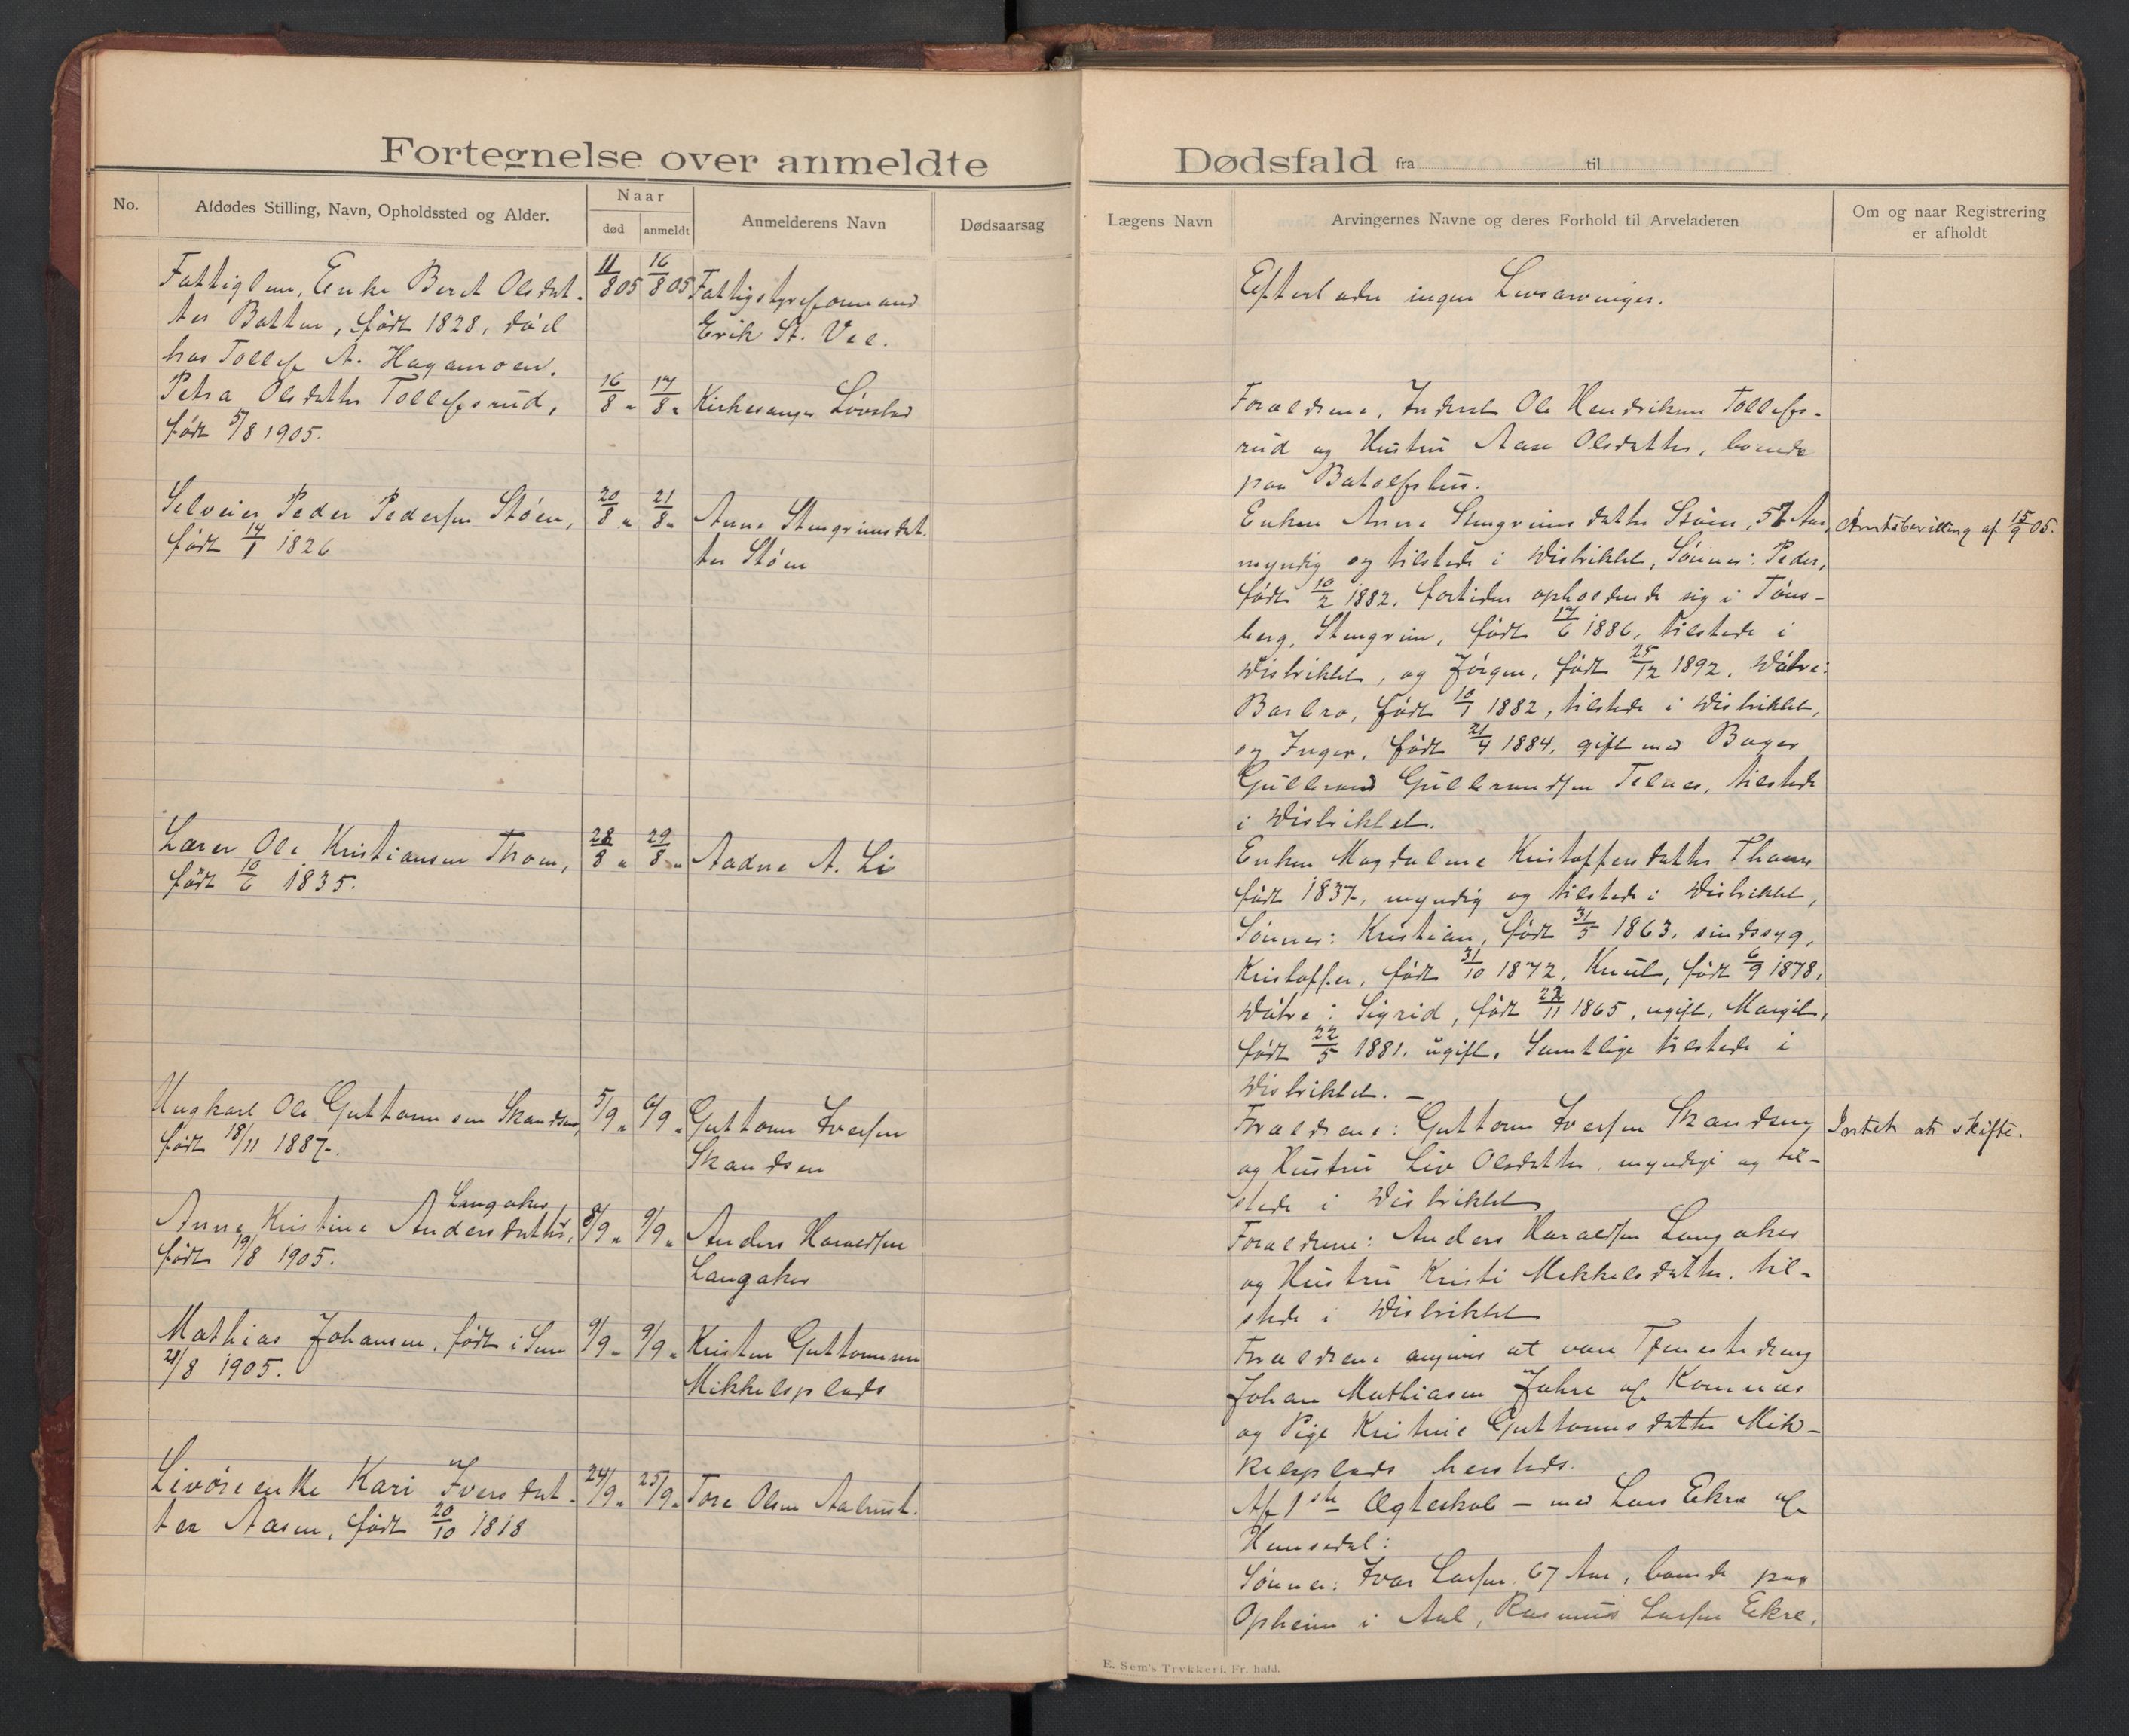 Fortegnelse over anmeldte
No.
Afdødes Stilling, Navn, Opholdssted og Alder.
Naar
død
anmeldt
Anmelderens Navn
Dødsaarsag
Fattiglem, Enke Berit Olsdat-
ter Batten, født 1828, død
hos Tollef A. Hagamoen.
11/8 05
16/8 05
Fattigstyreformand
Erik St. Vee.
Petra Olsdatter Tollefsrud,
født 5/8 1905.
16/8 "
17/8 "
Kirkesanger Løvstad
Selveier Peder Pedersen Støen,
født 14/1 1826
20/8 "
21/8 "
Anne Stengrimsdat-
ter Støen
Lærer Ole Kristiansen Thoen,
født 10/6 1835.
28/8 "
29/8 "
Aadne A. Li
Ungkarl Ole Guttormsen Skandsen,
født 18/11 1887.
5/9 "
6/9 "
Guttorm Iversen
Skandsen
Langaker
Anne Kristine Andersdatter,
født 19/8 1905.
8/9 "
9/9 "
Anders Haraldsen
Langaker
Mathias Johansen, født i Sem
21/8 1905.
9/9 "
9/9 "
Kristen Guttormsen
Mikkelsplads
Livøreenke Kari Iversdat-
ter Aasen, født 20/10 1818
24/9 "
25/9 "
Tore Olsen Aalrust.
Dødsfald fra til
Lægens Navn
Arvingernes Navne og deres Forhold til Arveladeren
Om og naar Registrering
er afholdt
Efterlader ingen Livsarvinger.
Forældrene, Inderst Ole Hendriksen Tollefs-
rud og Hustru Aase Olsdatter, boende
paa Batalfshus.
Enken Anne Stengrimsdatter Støen, 57 Aar,
myndig og tilstede i Distriktet, Sønner: Peder,
født 10/2 1882, fortiden opholdende sig i Tøns-
berg, Stengrim, født 17/6 1886, tilstede i
Distriktet, og Jørgen, født 25/12 1892. Døtre:
Barbro, født 10/1 1882, tilstede i Distriktet,
og Inger, født 21/4 1884, gift med Bager
Gulbrand Gulbrandsen Telnes, tilstede
i Distriktet.
Amtsbevilling af 15/9 05.
Enken Magdalene Kristoffersdatter Thoen
født 1837, myndig og tilstede i Distriktet,
Sønner: Kristian, født 31/5 1863, sindssyg,
Kristoffer, født 31/10 1872, Knut, født 6/9 1878,
Døtre: Sigrid, født 22/11 1865, ugift, Margit,
født 22/5 1881, ugift. Samtlige tilstede i
Distriktet. —
Forældrene: Guttorm Iversen Skandsen
og Hustru Liv Olsdatter, myndige og til-
stede i Distriktet
Intet at skifte.
Forældrene: Anders Haraldsen Langaker
og Hustru Kristi Mikkelsdatter, til-
stede i Distriktet
Forældrene angives at være Tjenestedreng
Johan Mathiasen Jahre af Komnæs
og Pige Kristine Guttormsdatter Mik-
kelsplads hersteds.
Af 1ste Ægteskab — med Lars Ekre af
Hemsedal:
Sønner: Ivar Larsen, 67 Aar, boende paa
Opheim i Aal, Rasmus Larsen Ekre,
E. Sem's Trykkeri. Fr. hald.